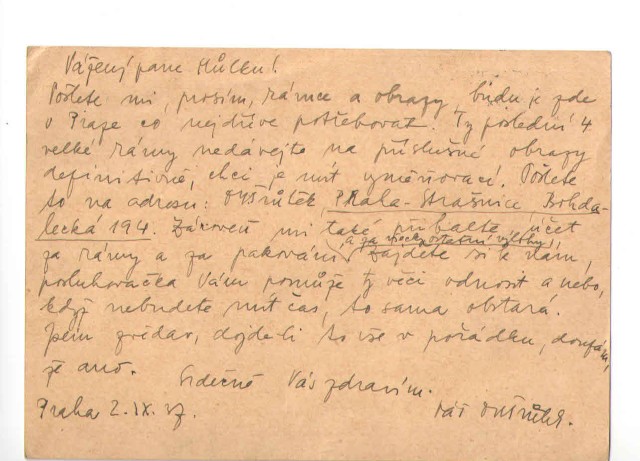 Vážený pane Hůlku!
Pošlete mi, prosím, rámce a obrazy, budu je zde
v Praze co nejdříve potřebovat. Ty poslední 4
velké rámy nedávejte na příslušné obrazy
definitivně, chci je mít vyměňovací. Pošlete
to na adresu: Praha-Strašnice, Bohda-
lecká 194. Zároveň mi také přibalte účet
a za všecky ostatní výlohy
za rámy a za pakování. Zajdete si k nám,
posluhovačka Vám pomůže ty věci odnosit a nebo,
když nebudete mít čas, to sama obstará.
Jsem zvědav, dojde-li to vše v pořádku, doufám,
že ano.
Srdečně Vás zdravím.
Praha 2.IX.37. Váš